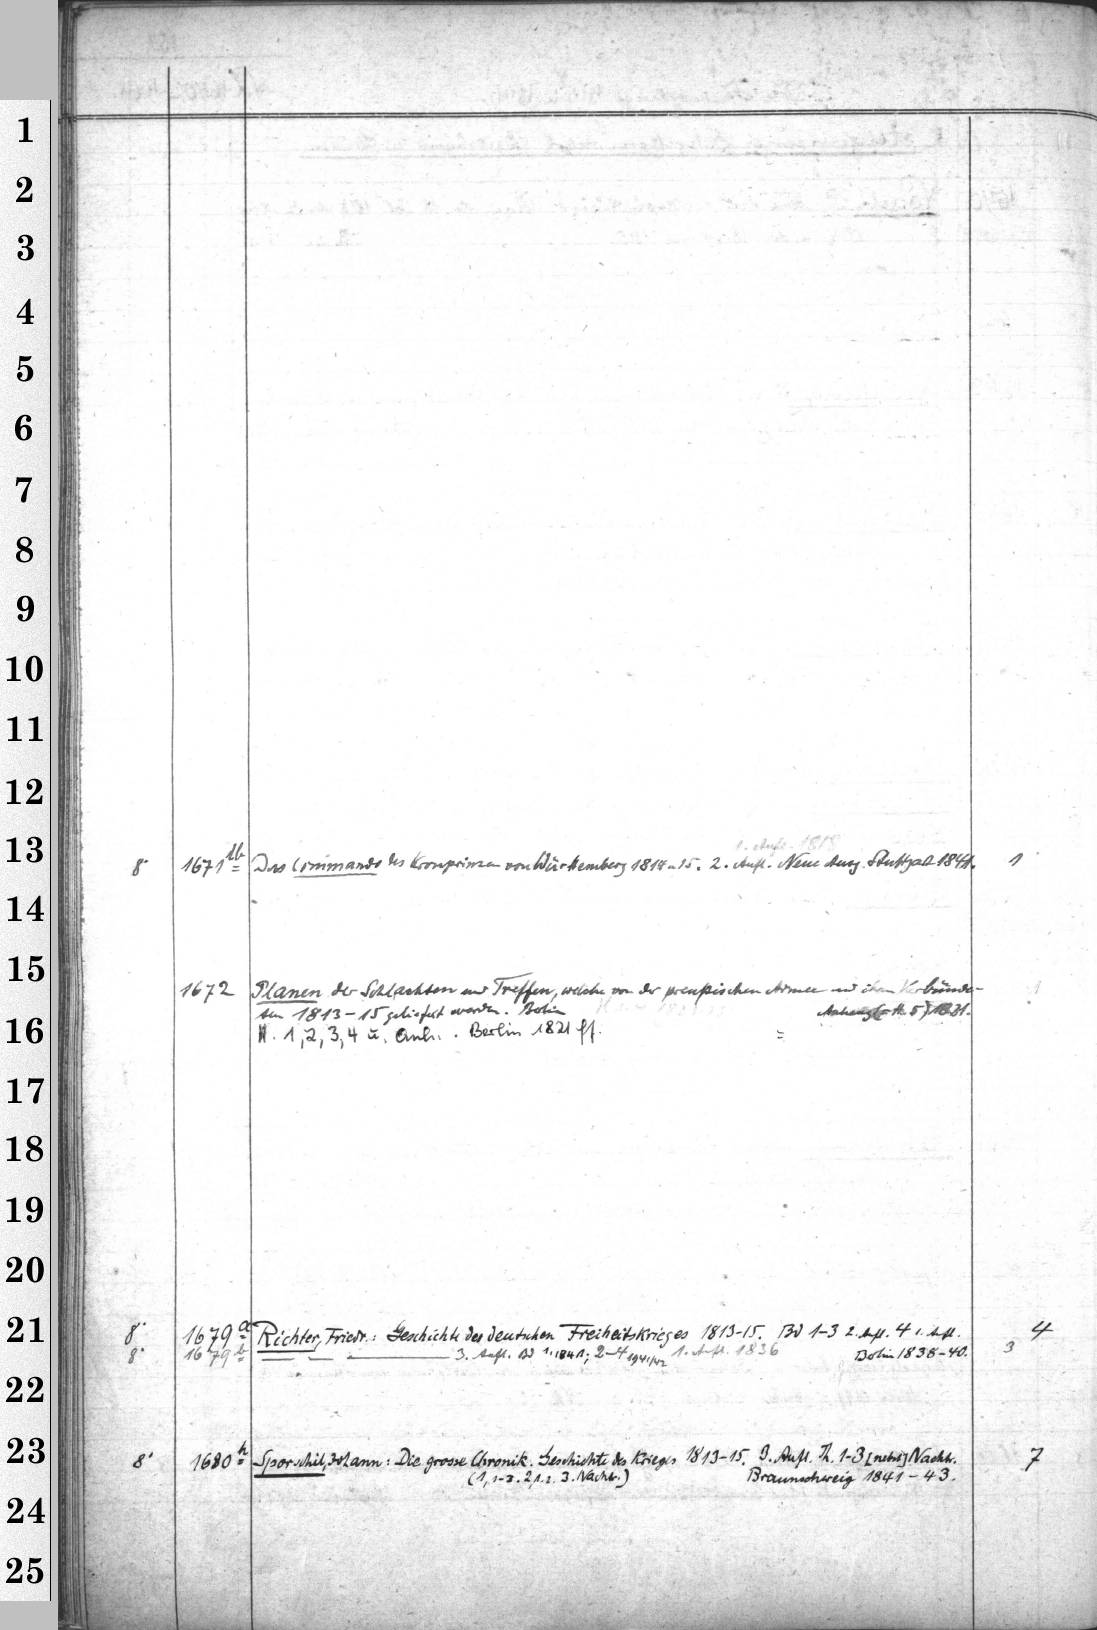 1
2
3
4
5
6
7
8
9
10
11
12
13
1. Aufl. 1818
8° 1671 1b Das Commando des Kronprinzen von Württemberg 1814 u 15. 2. Aufl. Neue Ausg. Stuttgart 1841. 1
14
15
1672 Planen der Schlachten und Treffen, welche von der preußischen Armee und ihren Verbünde-
ten 1813-15 geliefert worden. Berlin Anhang (= H. 5) 1831.
16
H. 1, 2, 3, 4 u. Anh. . Berlin 1821 ff.
17
18
19
20
21
8° 1679 a Richter, Friedr.: Geschichte des deutschen Freiheitskrieges 1813-15. Bd 1-3 2. Aufl. 4 1. Aufl. 4
8° 1679 b 3. Aufl. Bd 1. 1841; 2-4 1. Aufl. 1836 Berlin 1838-40. 3
22
23
8° 1680 h Sporschil, Johann: Die grosse Chronik. Geschichte des Krieges 1813-15. 3. Aufl. Th. 1-3 [nebst] Nachtr. 7
3. Nachtr.) Braunschweig 1841-43.
24
25